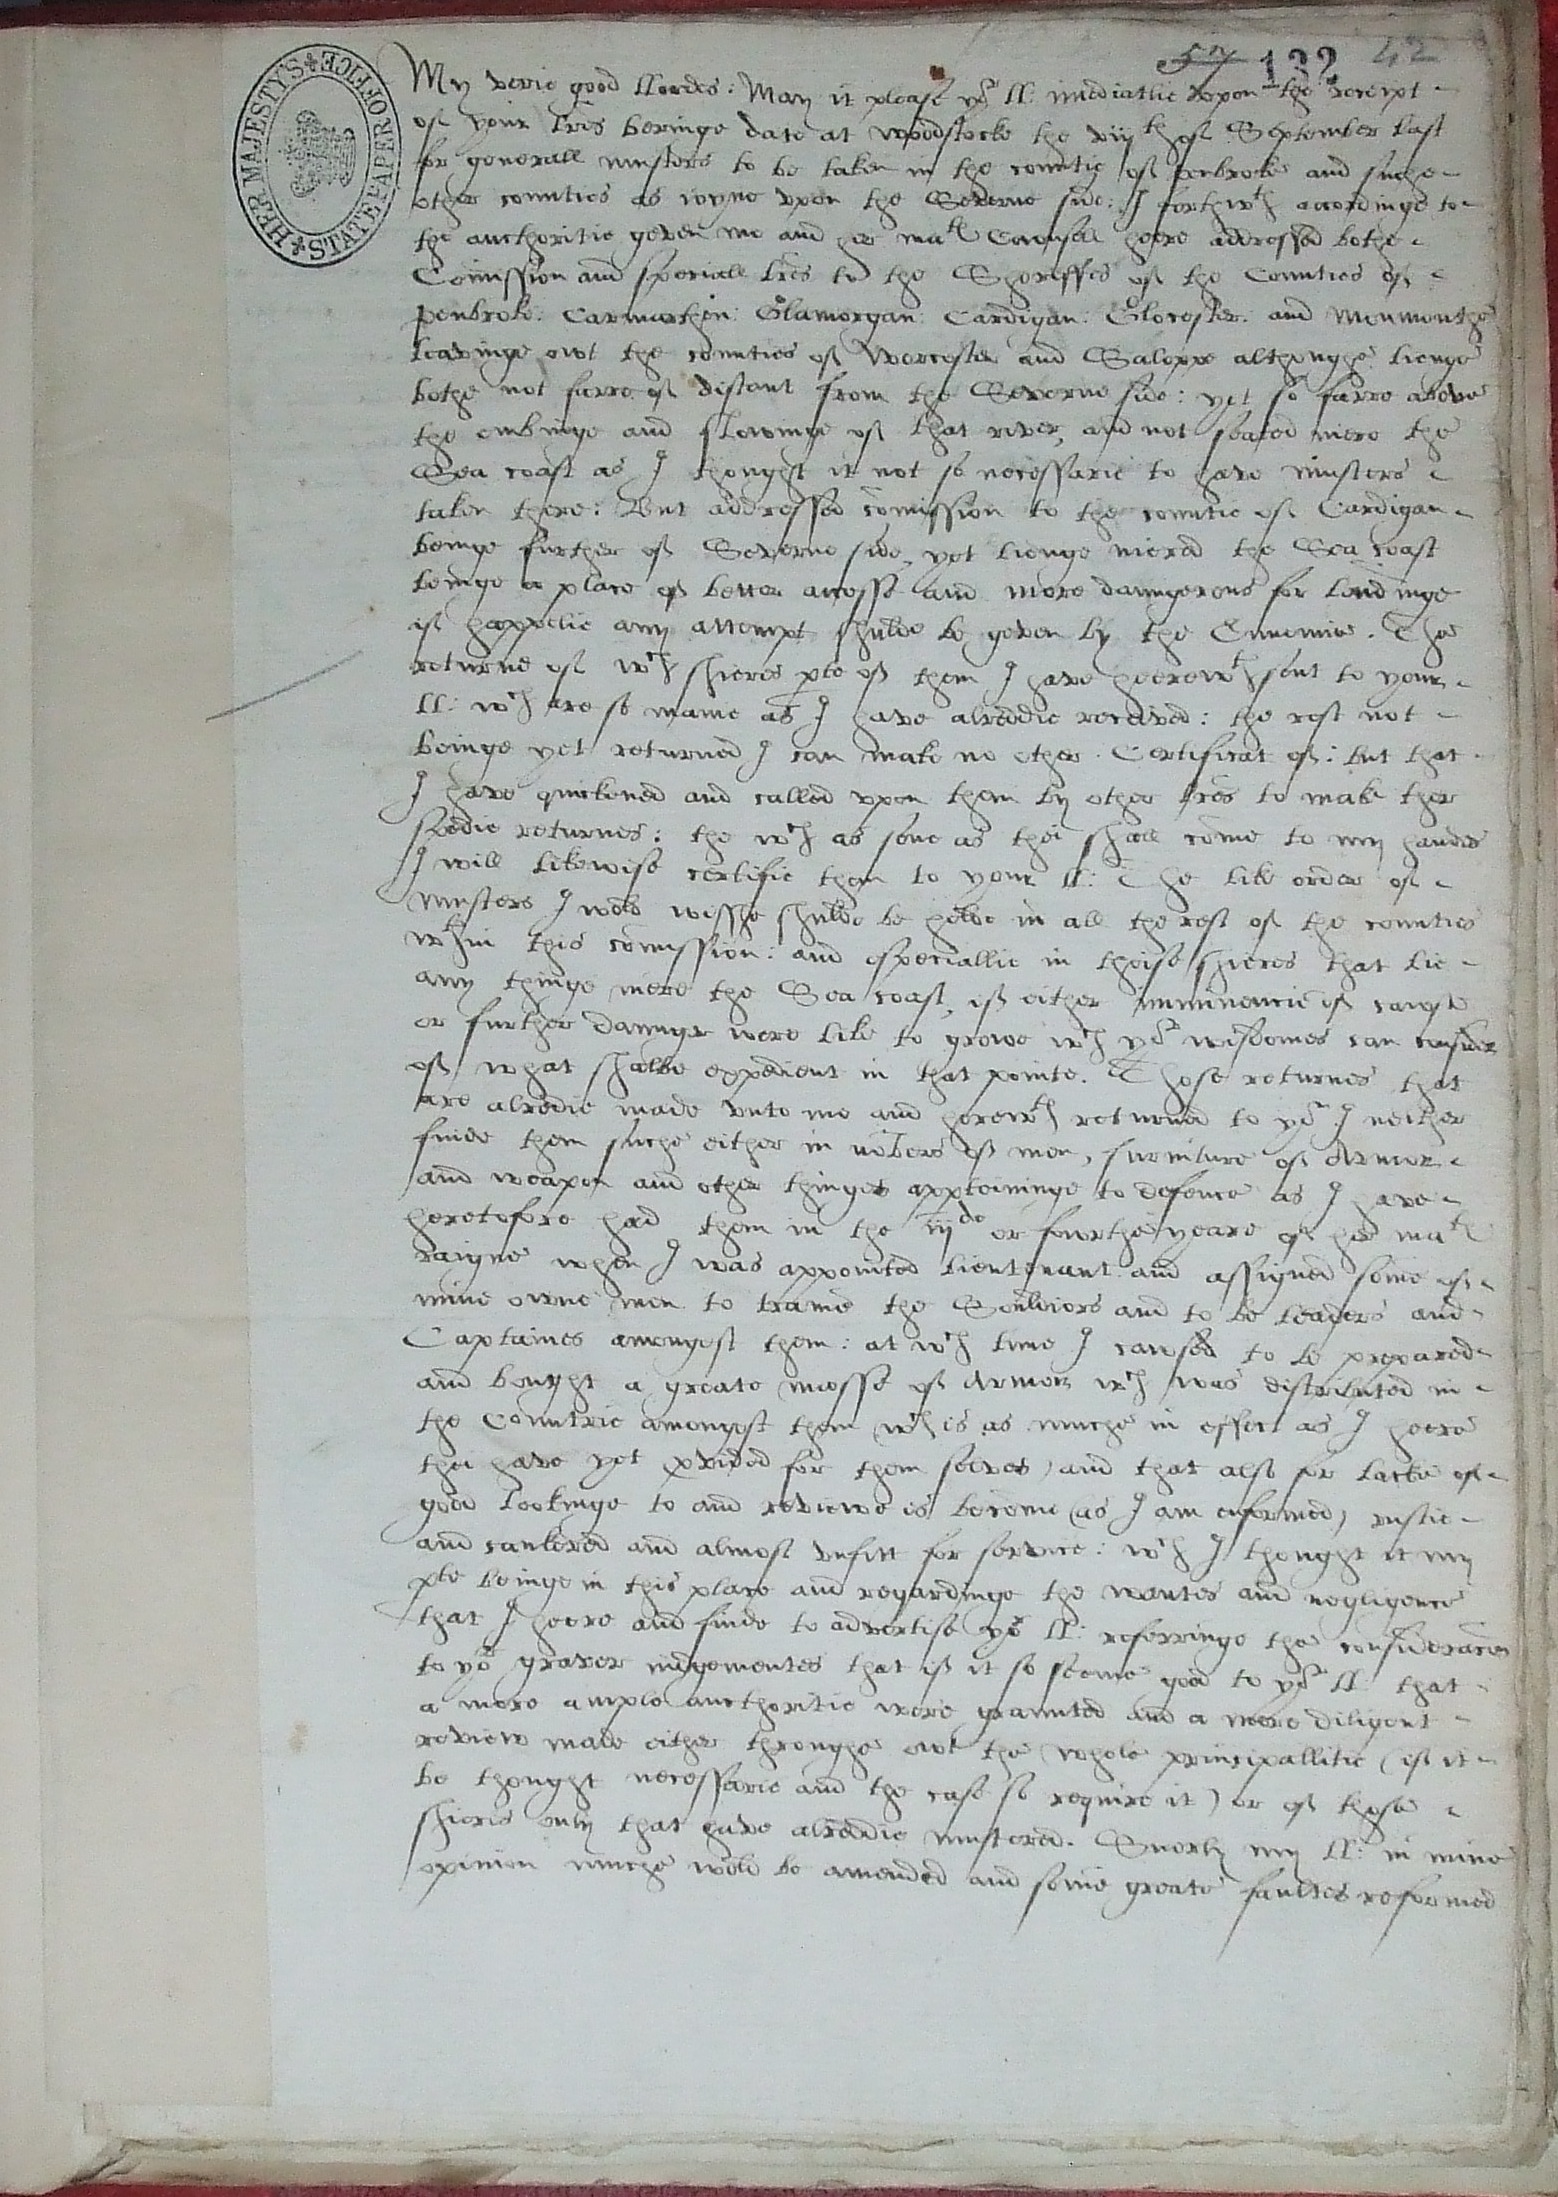 57 132 42
HER MAJESTY'S STATE PAPER OFFICE
My verie good Lordes: May it please yor ll: imediatlie vpon the receipt
of your lres beringe date at Woodstocke the viijth of September last
for generall musters to be taken in the countie of penbroke and suche
other counties as ioyne vpon the Severne side: I forthwth accordinge to
the aucthoritie geven me and her mats Counsell heere addressed bothe
Comission and speciall lres to the Sheriffes of the Counties of
Penbroke: Carmarthen: Glamorgan: Cardigan: Glocester: and Monmouthe
leavinge owt the counties of Worcester and Saloppe althoughe lienge
bothe not farre of distant from the Severne side: yet so farre above
the ebbinge and flowinge of that river, and not seated niere the
Sea coast as I thought it not so necessarie to have musters
taken there: But addressed comission to the countie of Cardigan
beinge further of Severne side, yet lienge niere the Sea coast
beinge a place of better accesse and more daungerous for landinge
if happelie any attempt shulde be geven by the Ennemie. The
returne of wch shieres pte of them I have heerewth sent to your
ll: wch are so manie as I have alreddie received: the rest not
beinge yet returned I can make no other Certificat of: but that
I have quickened and called vpon them by other lres to make ther
spedie returnes: the wch as sone as thei shall come to my handes
I will likewise certifie them to your ll: The like order of
musters I wold wisshe shulde be helde in all the rest of the counties
wthin this comission: and especiallie in theise shieres that lie
any thinge niere the Sea coast, if either imminencie of cause
or further daunger were like to growe wch yor wisdomes can consider
of what shalbe expedient in that pointe. Those returnes that
are alredie made vnto me and herewth returned to yor I neither
finde them suche either in nobers of men, furniture of Armor
and weapon and other thinges apperteininge to defence as I have
heretofore had them in the iijde or fourthe yeare of her mats
raigne when I was appointed Lieutenant and assigned some of
mine owne men to traine the Souldiers and to be leaders and
Captaines amongest them: at wch time I cawsed to be prepared
and bought a greate masse of Armor wch was distributed in
the Countrie amongest them (wch is as muche in effect as I heere
thei have yet pvided for them selves) and that also for lacke of
good lookinge to and reviewe is become (as I am enformed) rustie
and cankered and almost vnfitt for service: wch I thought it my
pte beinge in this place and regardinge the wantes and negligence
that I heere and finde to advertise yor ll: referringe the consideracon
to yor graver iudgementes that if it so seeme good to yor ll: that
a more ample aucthoritie were graunted and a more diligent
review made either throughe owt the whole principallitie (if it
be thought necessarie and the case so require it) or of those
shieres only that have alreadie mustered. Suerly my ll: in mine
opinion muche wold be amended and some greate faultes reformed